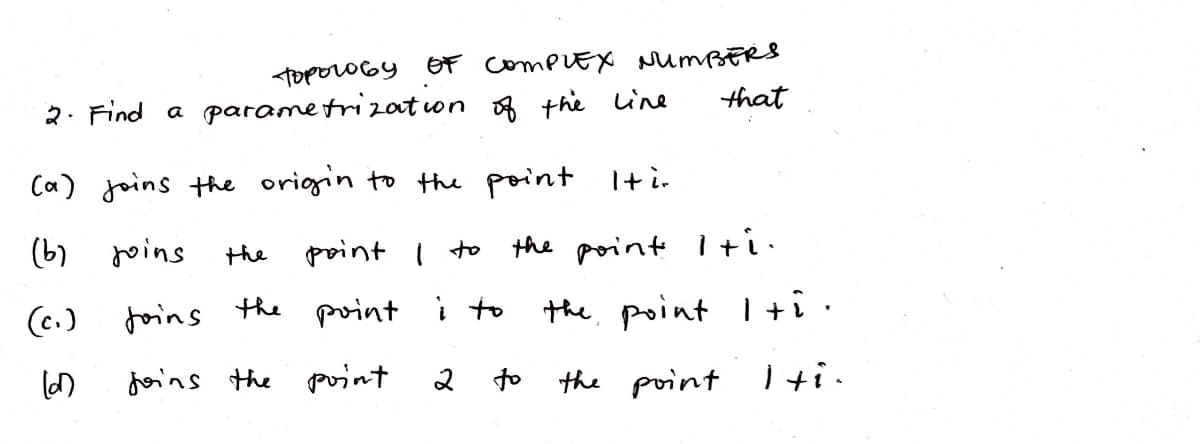 TOPOLOGY OF COMPLEX NUMBERS
2. Find a parametrization of the line that
(a) joins the origin to the point 1+i.
(b) joins the point 1 to the point 1+i.
(c.) joins the point i to the point 1+i.
(d) joins the point 2 to the point 1+i.